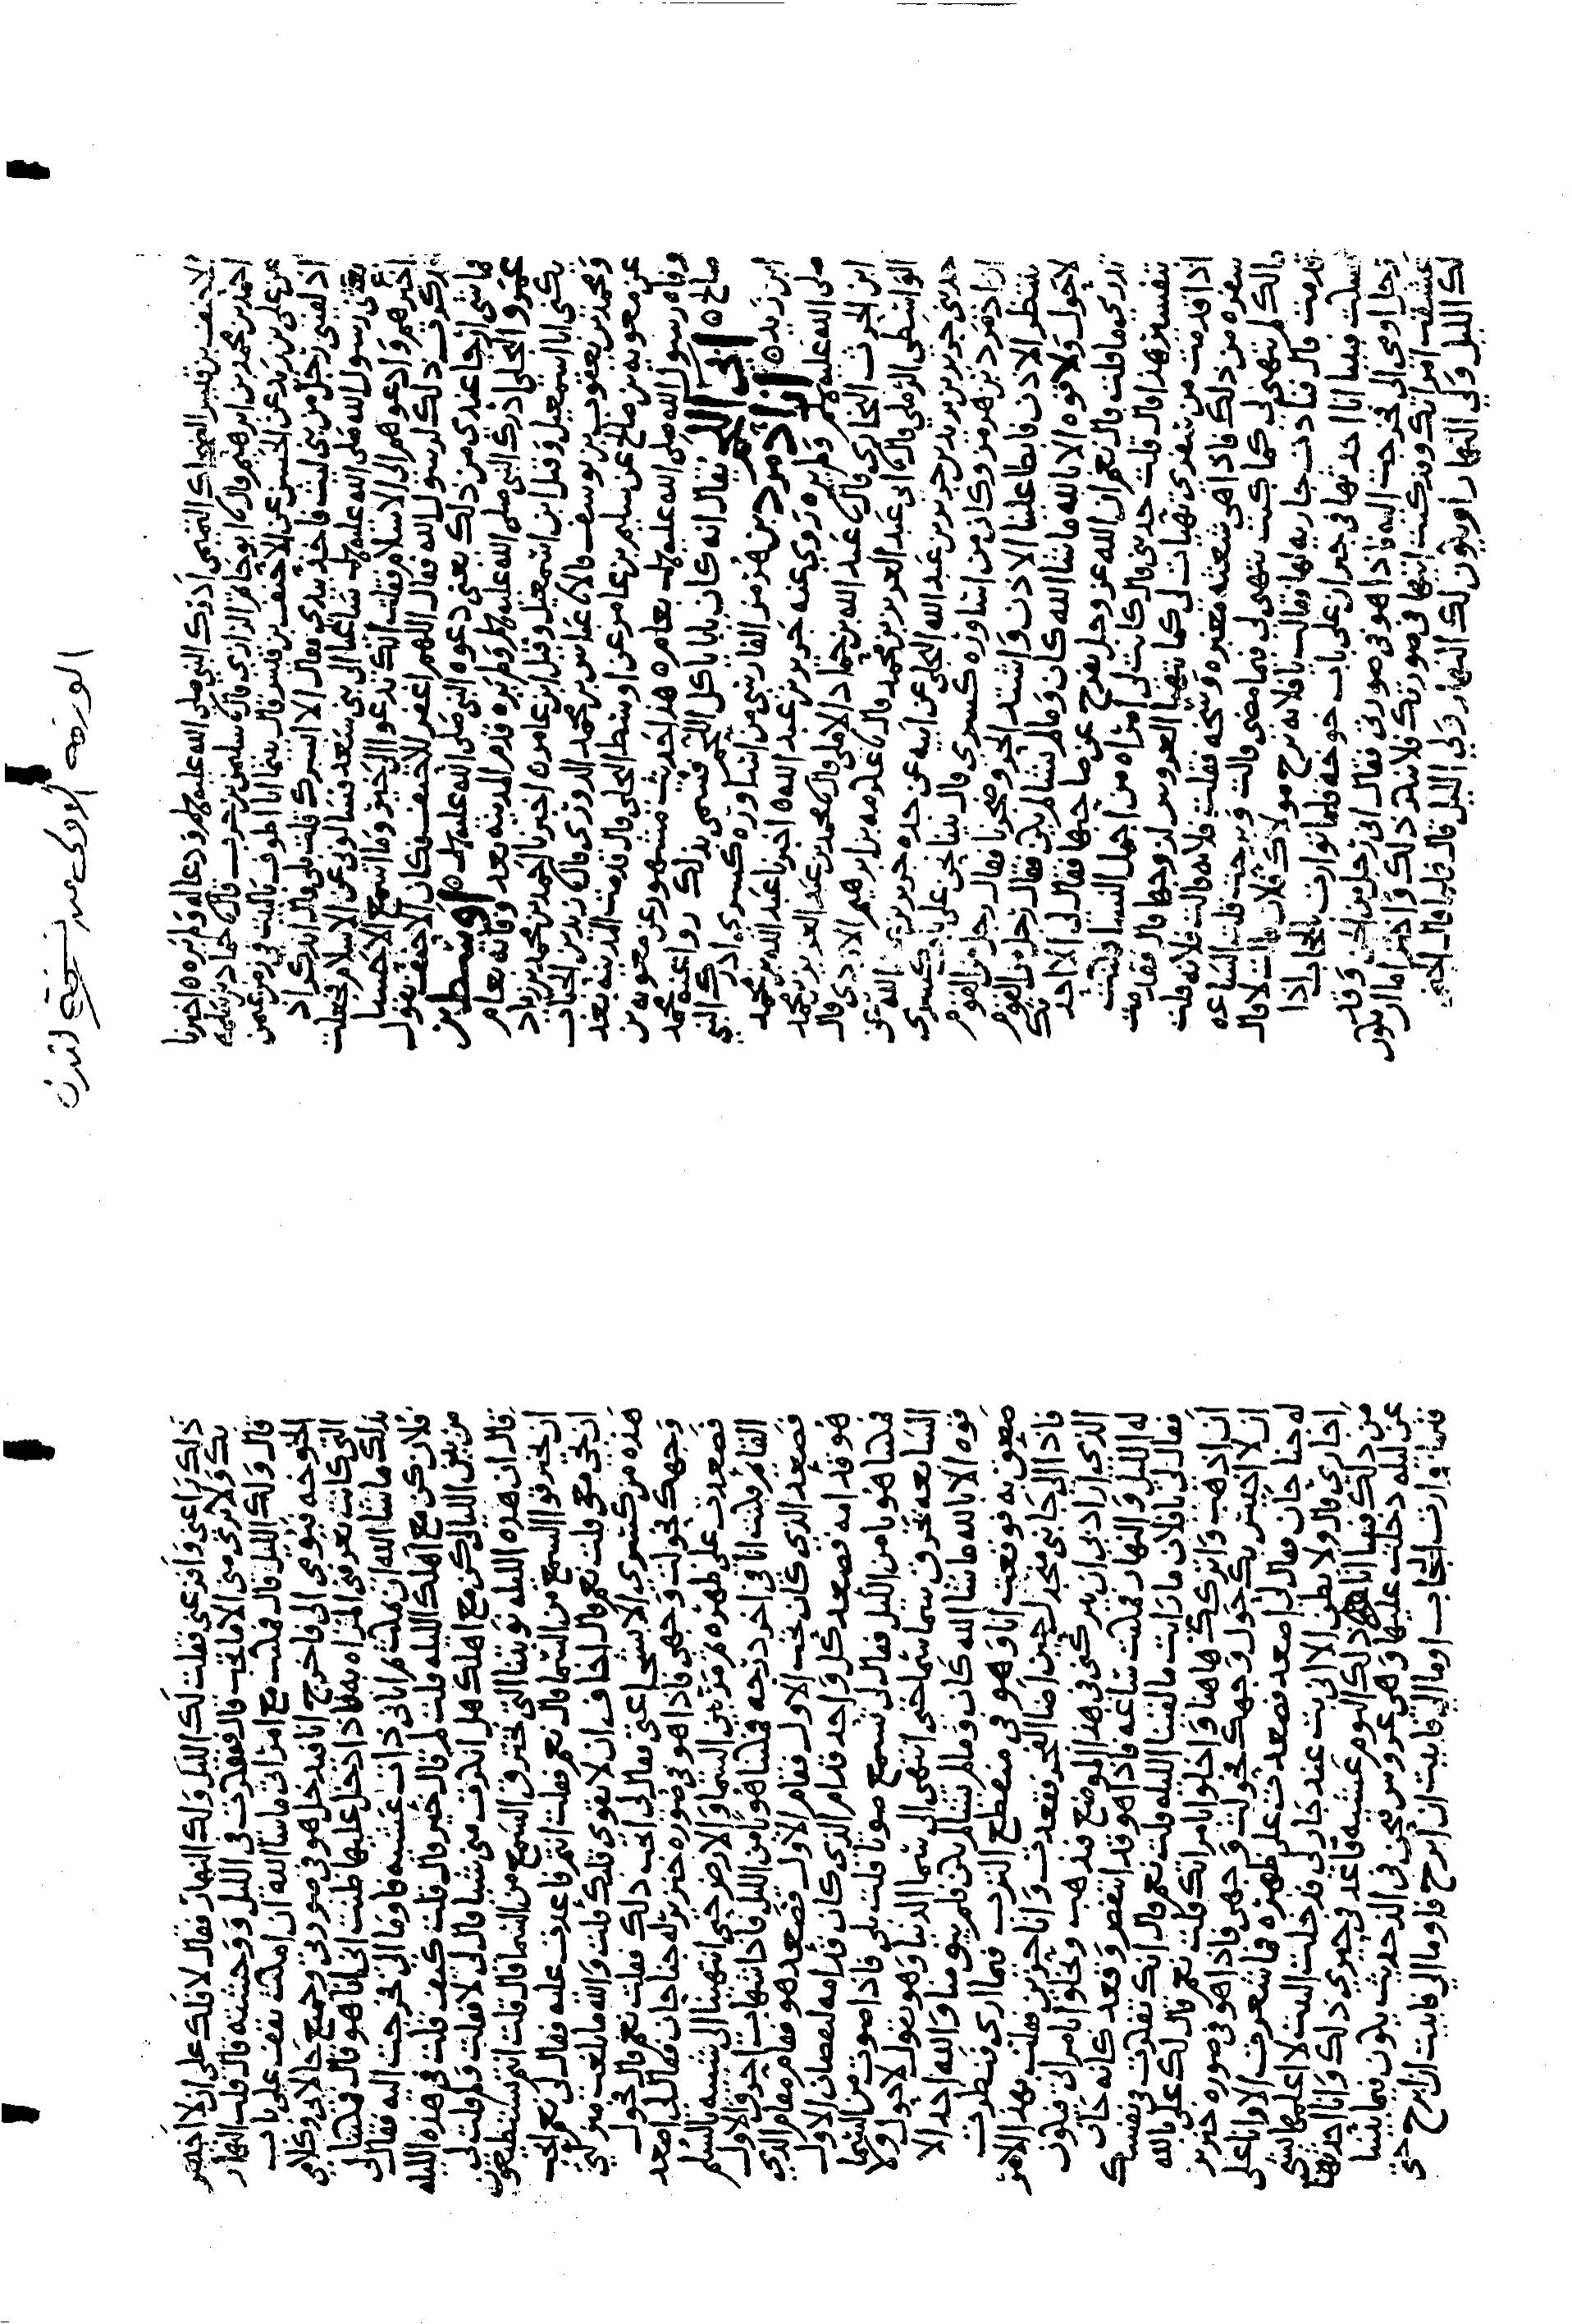 الورقة الأولى من نسخة لندن
الاحنف بن قيس الضحاك التميمي ادرك النبي صلى الله عليه وسلم ودعا له ولم يره اخبرنا
احمد بن محمد بن ابرهيم قال ابو حاتم الرازي قال سليمن بن حرب قال حماد بن سلمه
عن علي بن زيد عن الحسن عن الاحنف بن قيس قال بينما انا اطوف بالبيت في زمن عثمن
اذ لقيني رجل من بني ليث فاخذ بيدي فقال الا ابشرك قلت بلى قال اتذكر اذ
بعثني رسول الله صلى الله عليه وسلم ساعيا الى بني سعد فسالوني عن الاسلام فجعلت
اخبرهم وادعوهم الى الاسلام فقلت انك تدعو الى الخير وما اسمع الا حسنا
فذكرت ذلك لرسول الله فقال اللهم اغفر للاحنف فكان الاحنف يقول
ما شي ارجا عندي من ذلك يعني دعوه النبي صلى الله عليه وسلم اوسط بن
عمرو البجلي ادرك النبي صلى الله عليه وسلم ولم يره قدم المدينه بعد وفاته بعام
يكنى ابا اسمعيل وقيل ابن اسمعيل وقيل ابن عامر اخبرنا احمد بن محمد بن زياد
ومحمد بن يعقوب بن يوسف قالا عباس بن محمد الدوري قال زيد بن الحباب
عن معويه بن صالح عن سليم بن عامر عن اوسط البجلي قال قدمت المدينه بعد
وفاه رسول الله صلى الله عليه وسلم بعام هذا حديث مشهور عن معويه بن
صالح ابي اللحم يقال انه كان يابا ياكل اللحم فسمي بذلك روا عنه محمد
ابن زيد ازادمرد بن هرمز الفارسي من اساوره كسرى ادرك النبي
صلى الله عليه وسلم ولم يره روى عنه جرير بن عبد الله اخبرنا عبد الله بن محمد
ابن الحرث البخاري قال عبد الله بن حماد الاملي قال محمد بن عبد العزيز بن محمد
الواسطي الرملي قال ابي عبد العزيز بن محمد قال علقمه بن ابرهيم الازدي قال
حدثني جرير بن يزيد بن جرير بن عبد الله البجلي عن ابيه عن جده جرير بن عبد الله عن
ازادمرد بن هرمز وكان من اساوره كسرى قال بينا نحن على باب كسرى
ننتظر الاذن فابطا علينا الاذن واشتد الحر وضجرنا فقال رجل من القوم
لا حول ولا قوه الا بالله ما شا الله كان وما لم يشا لم يكن فقال رجل من القوم
تدري ما قلت قال نعم ان الله عز وجل يفرج عن صاحبها فقال لي الا احدثك
تفسير هذا قال قلت حدثني قال كانت لي امراه من اجمل النسا وكنت
اذا قدمت من سفري تهيات لي كما تتهيا العروس لزوجها قال فقدمت
سفره من ذلك فاذا هي شعثه مغبره وسخه فقلت فلانه قالت فلانه قلت
لك لم تتهيي لي كما كنت تتهيي لي فيما مضى قالت وبرحت قلت الساعه
قدمت قال فنادت جاريه لها وقالت يا فلانه برح مولاك فلان قالت لا قال
فسكت فبينا انا احدثها في حجرتي على باب خوخه فلما توارت بالحجاب اذا
رجل اومى الي فخرجت اليه فاذا هو في صورتي فقال اني رجل من الجن وقد
عشقت امراتك وقد كنت اتيها في صورتك فلا تنكر ذلك واختر اما ان يكون
لك الليل ولي النهار او يكون لك النهار ولي الليل قال فلما قال الجني
ذلك راعني وافزعني فقلت لك الليل ولك النهار فقال لا فلك علي ان لا اخضر
بك ولا ترى مني الا ما تحب قال ففكرت في الليل ووحشته قال قلت النهار
قال ولك الليل قال فمكثت مع امراتي ما شا الله ان امكث يقف على باب
الخوخه فيومي الي فاخرج انا فيدخل هو في صورتي وجميع حالاتي وكلامي
التي كانت تعرض المراه بها فاذا دخل عليها ظنت اني انا هو قال فمكثنا
بذلك ما شا الله ان نمكث ثم اتاني ذات عشيه فاوما الي فخرجت اليه فقال
فلان كن مع اهلك الليله قلت لم قال خير قال قلت كيف قلت في هذه الليله
من بين الليالي كن مع اهلك هل انكرت مني شيا قال لا فقلت ولم قلت لي
قال ان هذه الليله نوبتنا التي نسترق السمع من السما قال قلت انتم تستطيعون
ان تخبروا السمع من السما قال نعم فقلت انتم فاعدت عليه فقال لي نعم اتحب
ان تجي معي قلت نعم قال اخاف ان لا يقوى قلبك قلت والله ما بلغت منزلتي
هذه من كسرى الا بشجاعتي فقال لي اتحب ذلك فقلت نعم قال حول
وجهك فحولت وجهي فاذا هو في صوره خنزير له جناحان فقال لي اصعد
فصعدت على ظهره ثم مر بين السما والارض حتى انتهينا الى شبه بالسلم
القايم قال انا في اخر درجه فمكثنا هويا من الليل فاذا شهاب احرق الاول
فصعد الذي كان تحت الاول فقام الاول فصعد هو فقام مقام الذي
هو قدامه فصعد كل واحد قدام الذي كان قدامه لنقصان الاول
فمكثنا هويا من الليل فقال لي تسمع صوتا قلت بلى فاذا صوت من السما
السابعه تخرق سما سما حتى انتهى الى سما الدنيا وهو يقول لا حول ولا
قوه الا بالله ما شا الله كان وما لم يشا لم يكن فلم يبق منا والله احد الا
صعق به فوقعت انا وهو في منقطع التراب فما ادري فنظرت
فاذا الى جانبي منجدل حين اضا الفجر فقعدت وانا حزين فقلت بهذا الامر
الذي اراد بي ان يتركني في هذا الموضع فيذهب ويخلو بامراتي فيكون
له الليل والنهار فمكثت ساعه فاذا هو قد انتفض وقعد كانه خاف
فقال لي يا فلان ما رات ما لقينا الليله قلت نعم قال انك تفكرت في نفسك
اني اذهب واتركك هاهنا واخلو بامراتك قلت نعم قال لك علي بالله
ان لا اختر بك حول وجهك فحولت وجهي فاذا هو في صوره خنزير
له جناحان فقال لي اصعد فصعدت على ظهره فما شعرت الا وانا على
اجاري قال ولا يظن الا اني بت عند جار لي فدخلت البيت لا اعلمها بشي
من ذلك فبينا انا ذلك اليوم عشيه قاعد في حجرتي ذلك وانا احدثها
عن ليله دخلت عليها وهي عروس نحن في الذ حديث يكون فيما بيننا
فتما وارت الحجاب اوما الي فابيت ان ابرح فاوما الي فابيت ان ابرح حتى